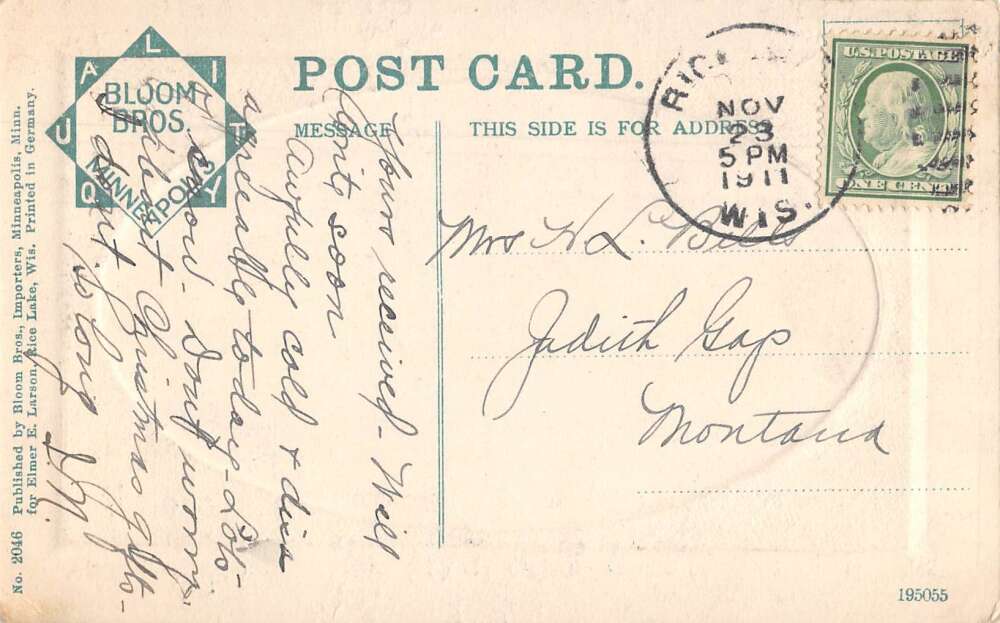 POST CARD.
MESSAGE
THIS SIDE IS FOR ADDRESS
QUALITY
BLOOM
BROS.
MINNEAPOLIS
RICE
NOV
23
5 PM
1911
WIS.
U.S. POSTAGE
ONE CENT
Mrs H L. Bills
Judith Gap
Montana
Yours received - Will
write soon
Awfully cold & dis
agreeable to-day - Lots
of snow - Dont worry
about Christmas gifts -
I dont. So long
No. 2046 Published by Bloom Bros., Importers, Minneapolis, Minn.
for Elmer E. Larson, Rice Lake, Wis. Printed in Germany.
195055